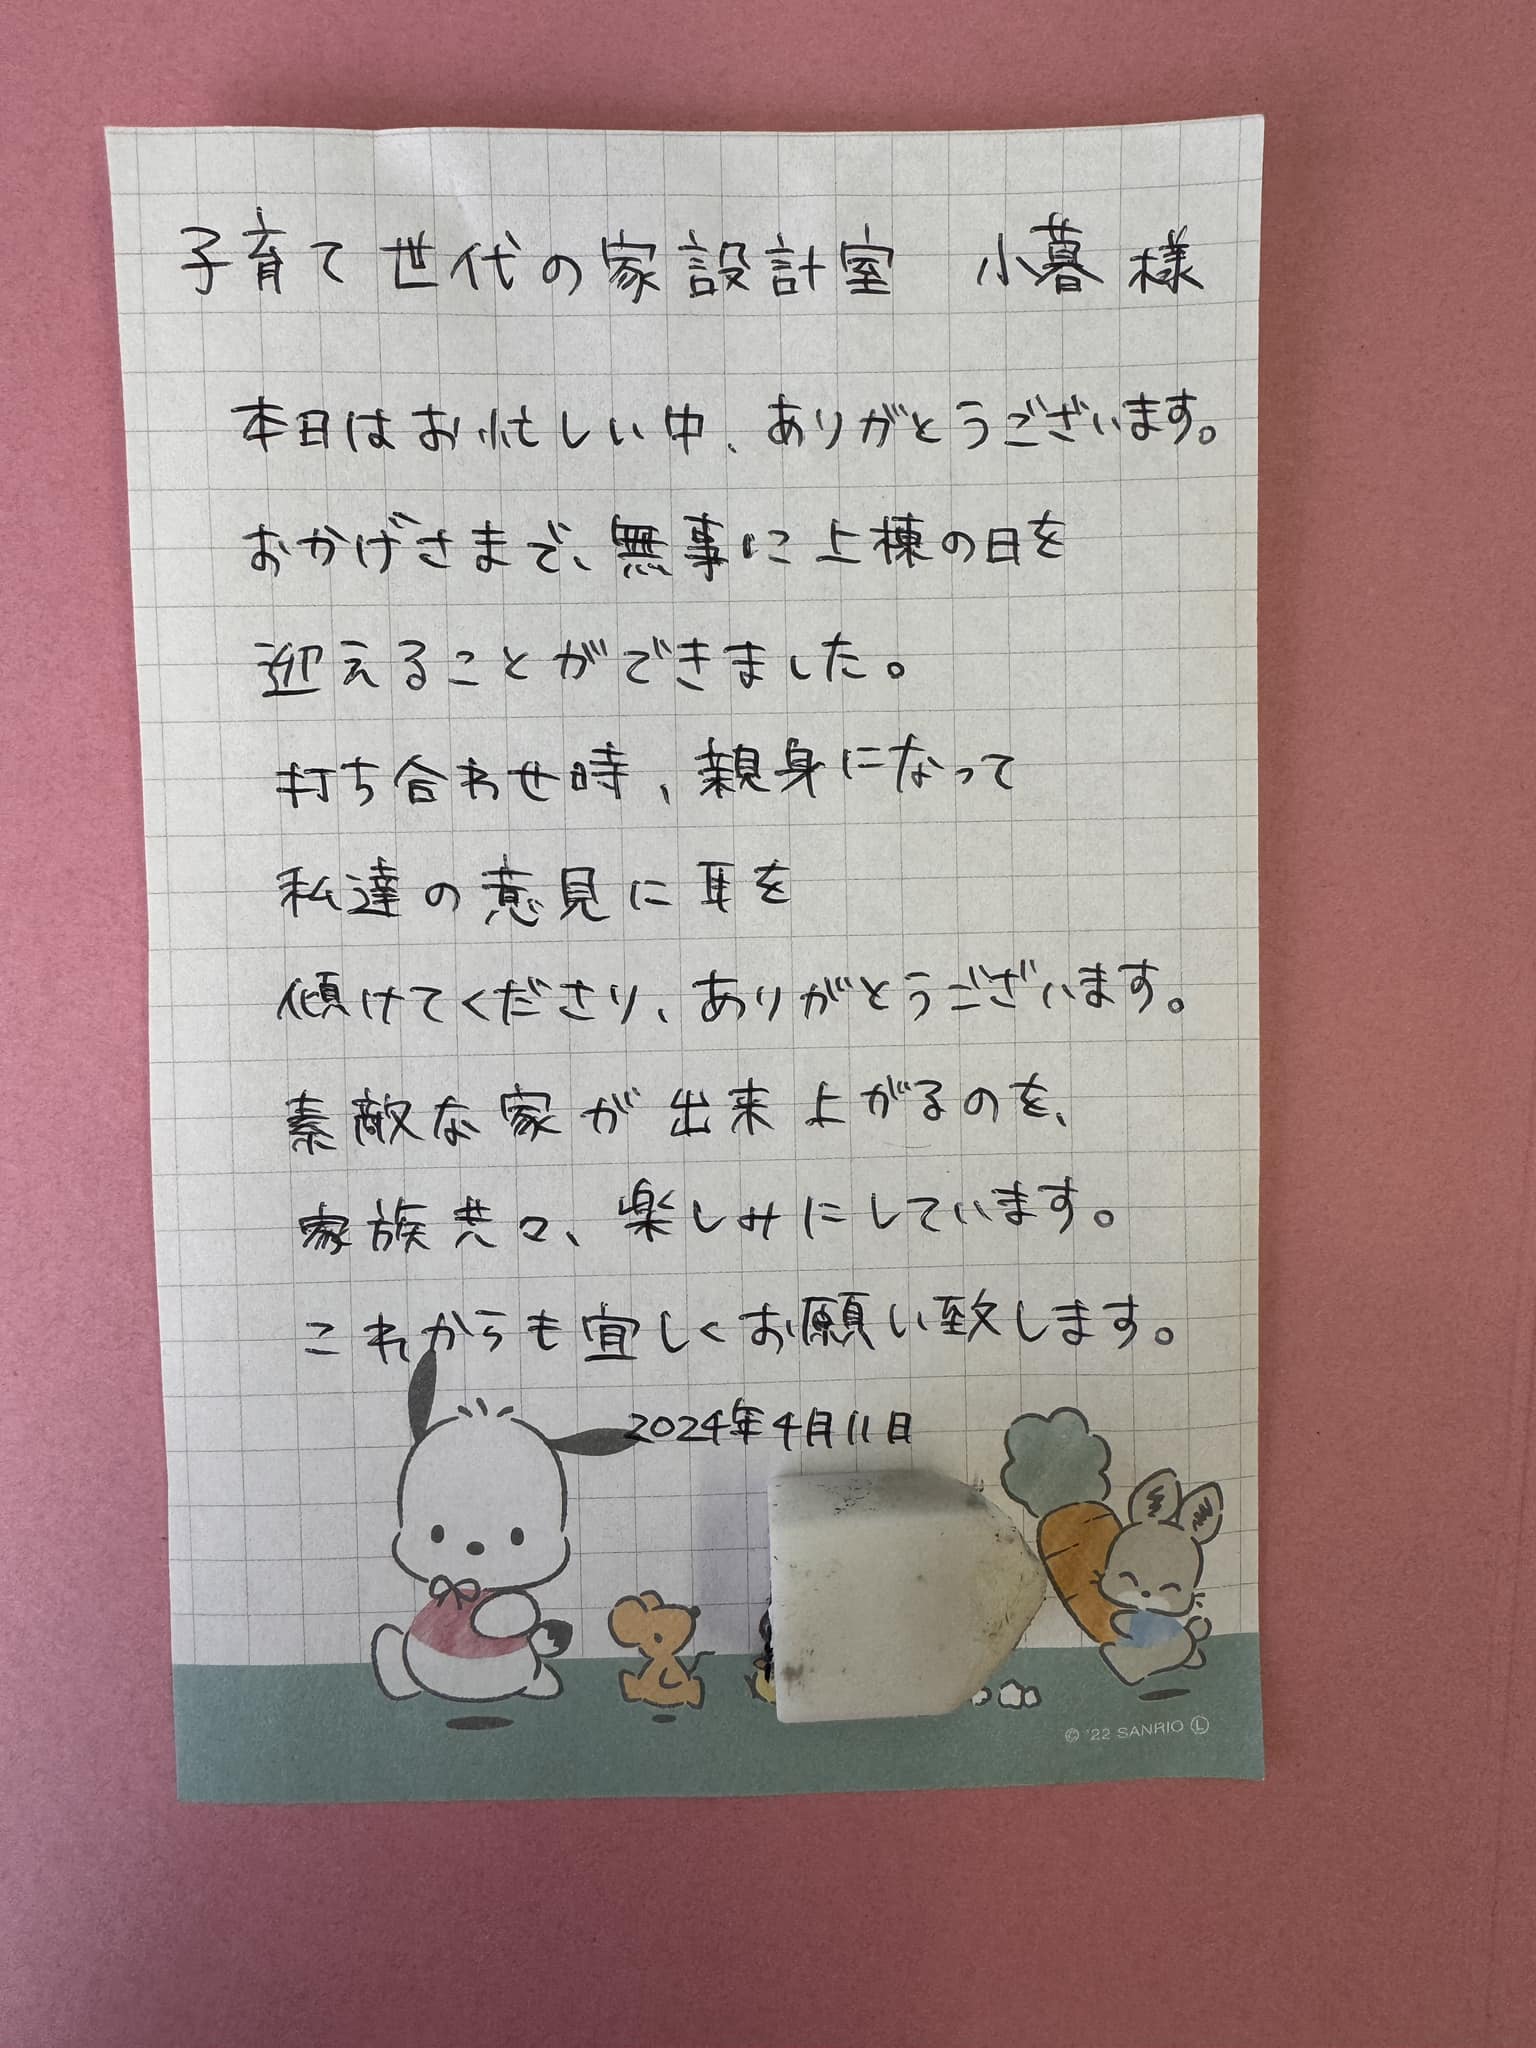 子育て世代の家設計室　小暮様
本日はお忙しい中、ありがとうございます。
おかげさまで、無事に上棟の日を
迎えることができました。
打ち合わせ時、親身になって
私達の意見に耳を
傾けてくださり、ありがとうございます。
素敵な家が出来上がるのを、
家族共々、楽しみにしています。
これからも宜しくお願い致します。
2024年4月11日
© '22 SANRIO Ⓛ